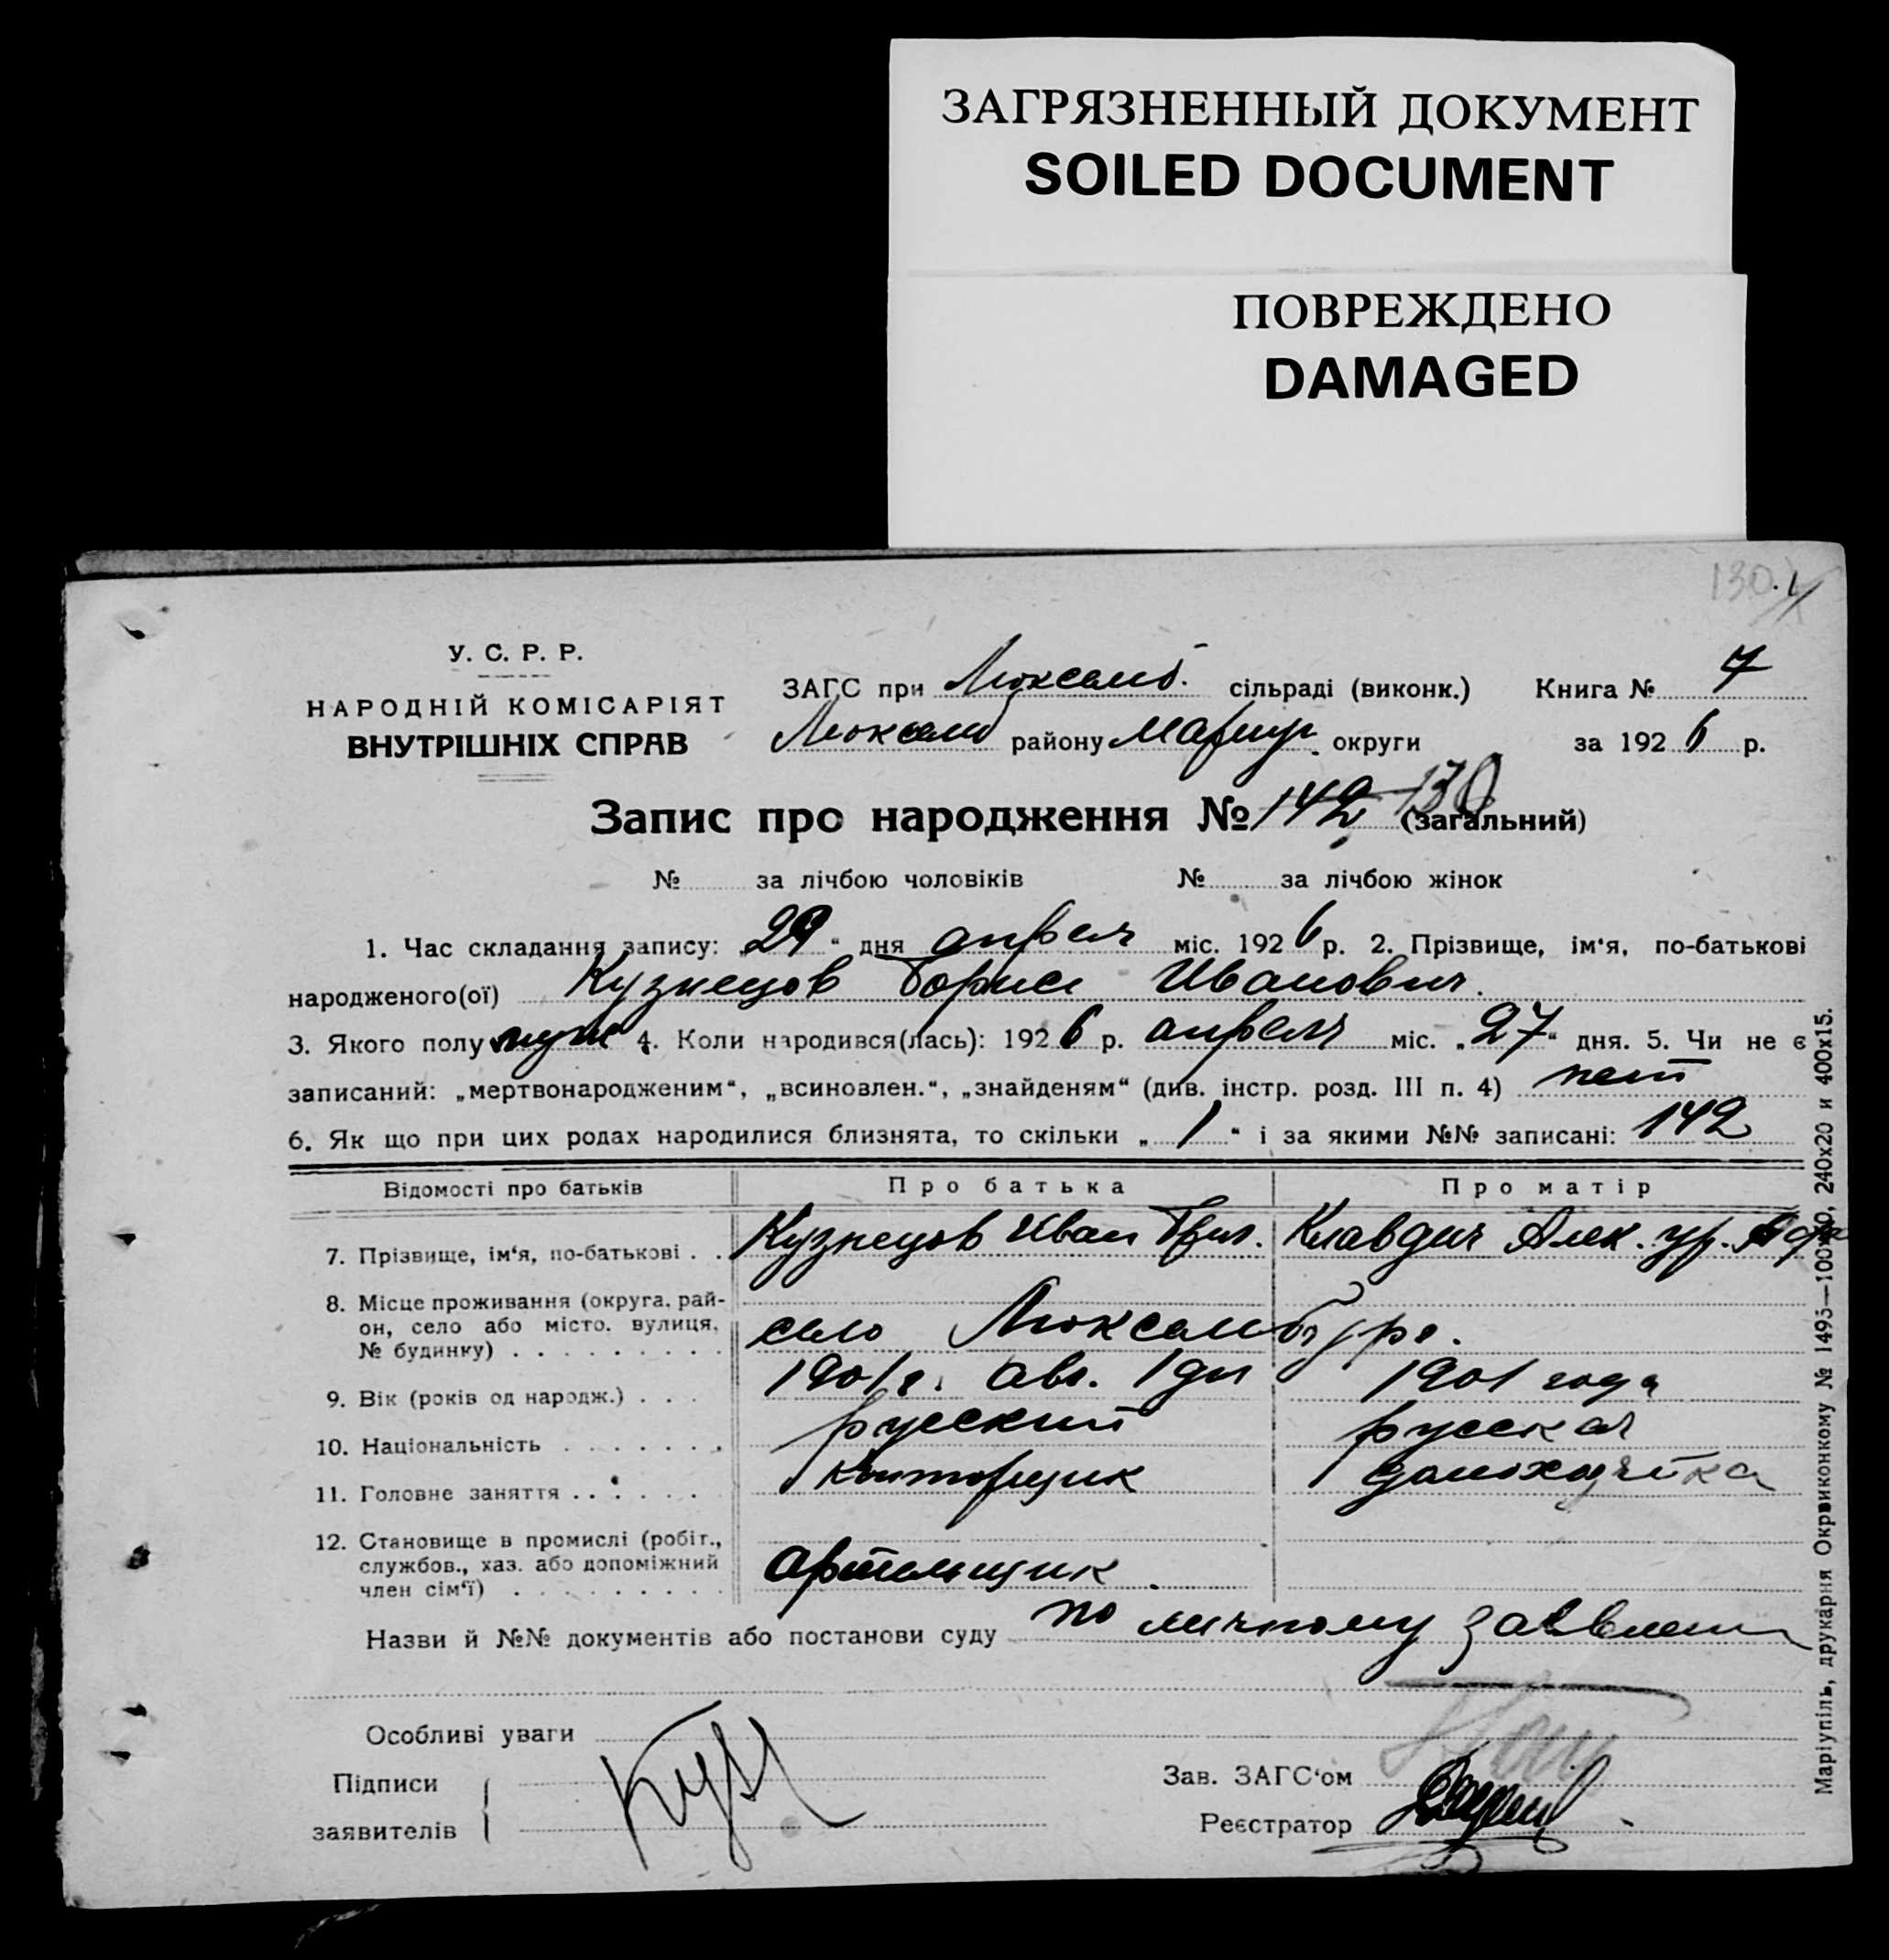 ЗАГРЯЗНЕННЫЙ ДОКУМЕНТ
SOILED DOCUMENT
ПОВРЕЖДЕНО
DAMAGED
130.
У. С. Р. Р.
НАРОДНІЙ КОМІСАРІЯТ
ВНУТРІШНІХ СПРАВ
ЗАГС при Люксемб. сільраді (виконк.) Книга № 7
Люксемб району Мариуп. округи за 1926 р.
Запис про народження № 142 130 (загальний)
№ за лічбою чоловіків № за лічбою жінок
1. Час складання запису: „29“ дня апреля міс. 1926 р. 2. Прізвище, ім‘я, по-батькові
народженого(ої) Кузнецов Борис Иванович.
3. Якого полу муж 4. Коли народився(лась): 1926 р. апреля міс. „27“ дня. 5. Чи не є
записаний: „мертвонародженим“, „всиновлен.“, „знайденям“ (див. інстр. розд. III п. 4) нет
6. Як що при цих родах народилися близнята, то скільки „1“ і за якими №№ записані: 142
Відомості про батьків Про батька Про матір
7. Прізвище, ім‘я, по-батькові . . Кузнецов Иван Клавдия Алек. ур.
8. Місце проживання (округа, рай-
он, село або місто, вулиця,
№ будинку) . . . . . . . . . село Люксембург.
9. Вік (років од народж.) . . . 1901 г. авг. 1 дня 1901 года
10. Національність . . . . . . . русский русская
11. Головне заняття . . . . . . Конторщик домохозяйка
12. Становище в промислі (робіт.,
службов., хаз. або допоміжний
член сім‘ї) . . . . . . . . . артельщик.
Назви й №№ документів або постанови суду по личному заявлени
Особливі уваги
Підписи
заявителів Кузн
Зав. ЗАГС‘ом
Реєстратор
Маріупіль, друкарня Окрвиконкому № 1493—100×100, 240х20 и 400х15.